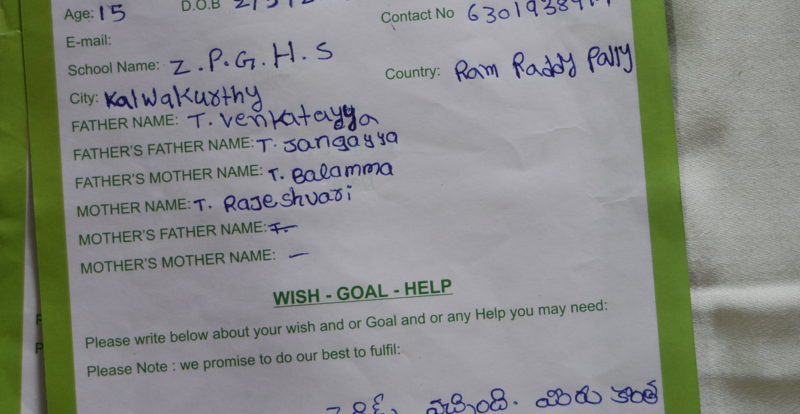 Age: 15 D.O.B
Contact No
E-mail:
School Name: Z.P.G.H.S
Country: Ram Raddy Pally
City: Kalwakurthy
FATHER NAME: T. Venkatayya
FATHER'S FATHER NAME: T. Jangayya
FATHER'S MOTHER NAME: T. Balamma
MOTHER NAME: T. Rajeshvari
MOTHER'S FATHER NAME:
MOTHER'S MOTHER NAME: —
WISH - GOAL - HELP
Please write below about your wish and or Goal and or any Help you may need:
Please Note : we promise to do our best to fulfil: